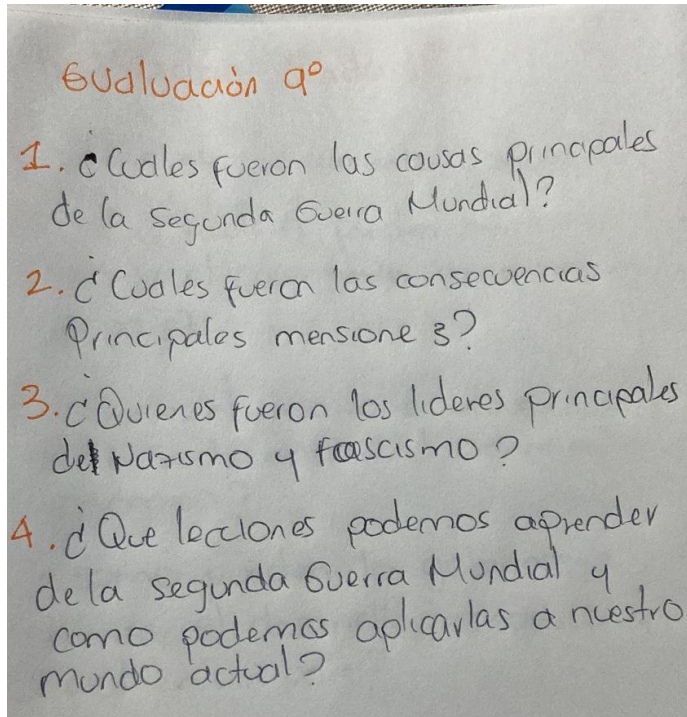 Evaluación 9º
1. ¿Cuales fueron las causas principales
de la Segunda Guerra Mundial?
2. ¿Cuales fueron las consecuencias
Principales mensione 3?
3. ¿Quienes fueron los lideres principales
del Nazismo y fascismo?
4. ¿Que lecciones podemos aprender
de la segunda Guerra Mundial y
como podemos aplicarlas a nuestro
mundo actual?